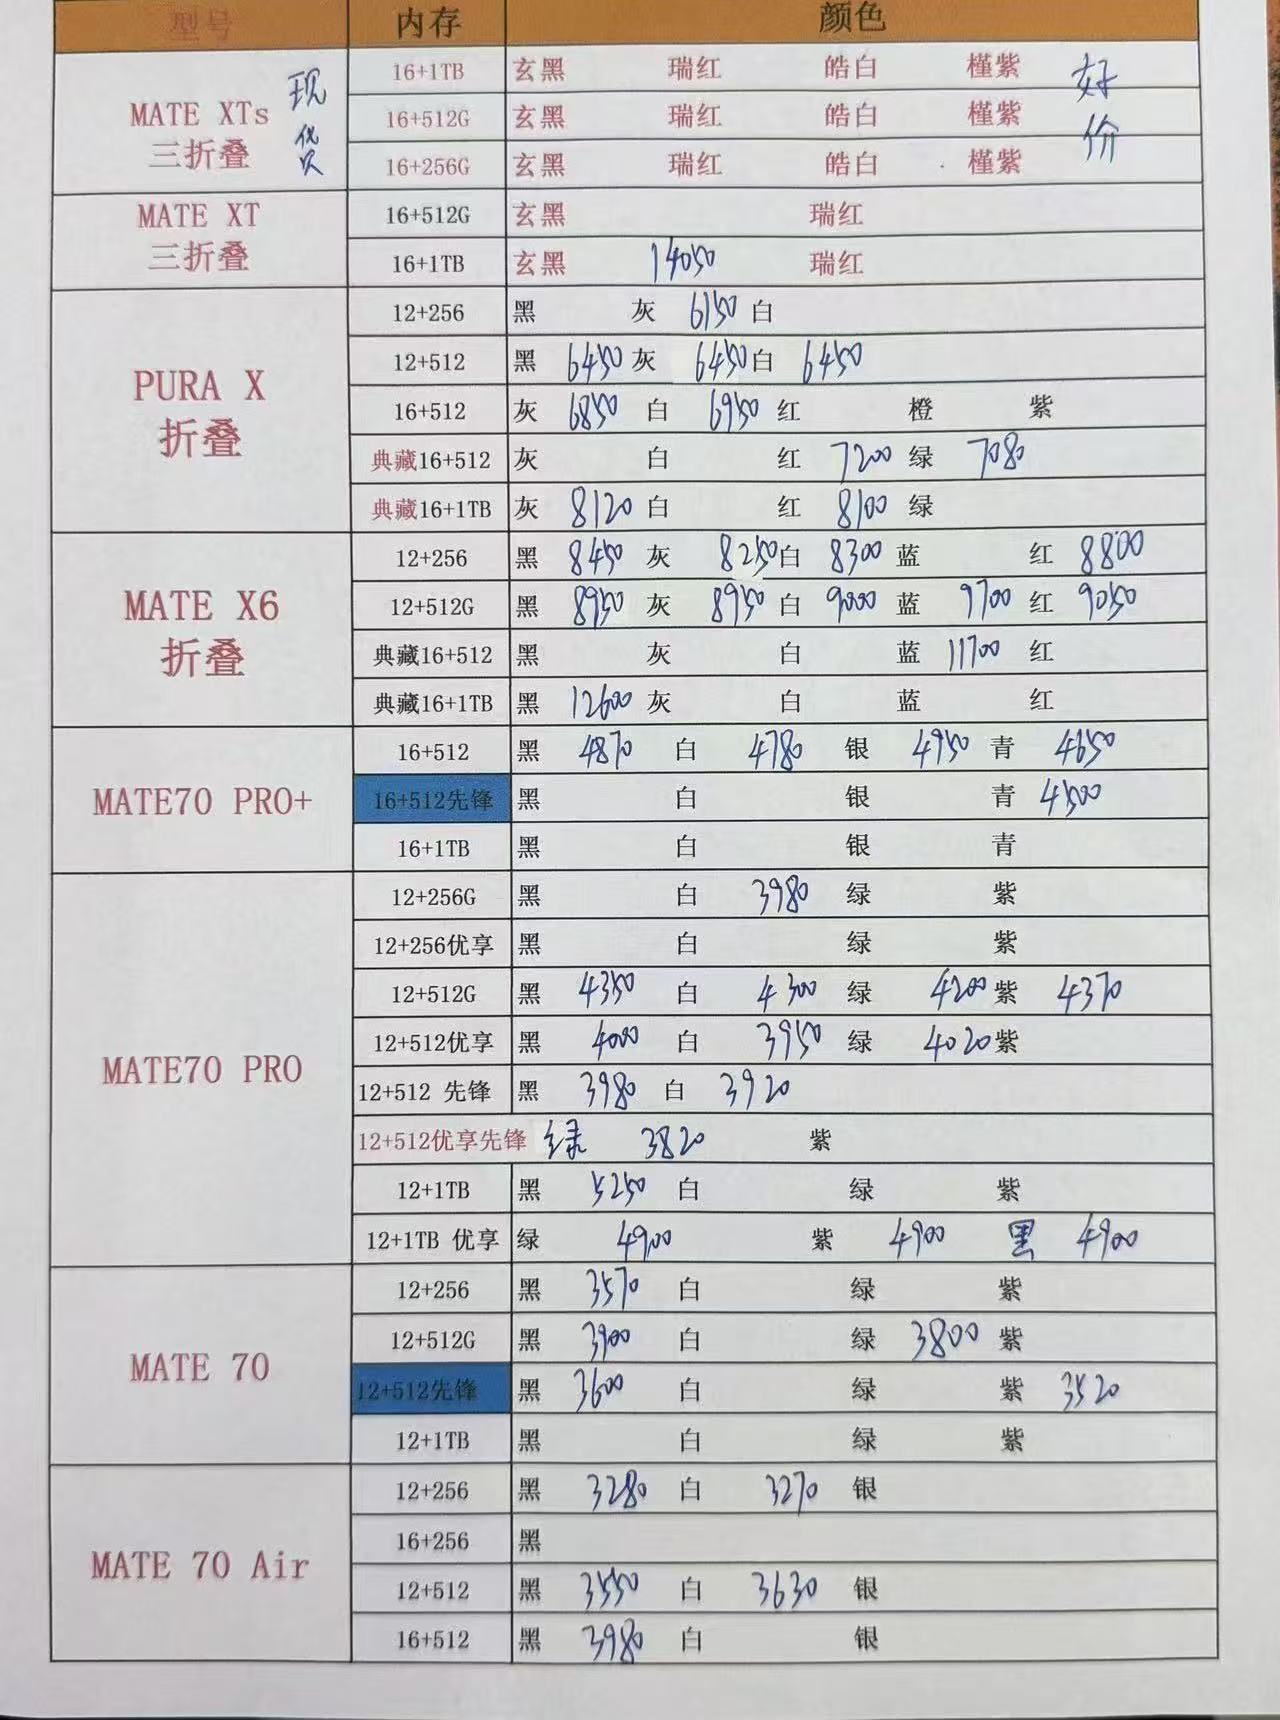 型号 内存 颜色
MATE XTs 三折叠 现货 16+1TB 玄黑 瑞红 皓白 槿紫 好价
16+512G 玄黑 瑞红 皓白 槿紫
16+256G 玄黑 瑞红 皓白 槿紫
MATE XT 三折叠 16+512G 玄黑 瑞红
16+1TB 玄黑 14050 瑞红
PURA X 折叠 12+256 黑 灰 6150 白
12+512 黑 6450 灰 6450 白 6450
16+512 灰 6850 白 6950 红 橙 紫
典藏16+512 灰 白 红 7200 绿 7080
典藏16+1TB 灰 8120 白 红 8100 绿
MATE X6 折叠 12+256 黑 8450 灰 8250 白 8300 蓝 红 8800
12+512G 黑 8950 灰 8950 白 9000 蓝 9700 红 9050
典藏16+512 黑 灰 白 蓝 11700 红
典藏16+1TB 黑 12600 灰 白 蓝 红
MATE70 PRO+ 16+512 黑 4870 白 4780 银 4950 青 4650
16+512先锋 黑 白 银 青 4500
16+1TB 黑 白 银 青
MATE70 PRO 12+256G 黑 白 3980 绿 紫
12+256优享 黑 白 绿 紫
12+512G 黑 4350 白 4300 绿 4200 紫 4370
12+512优享 黑 4000 白 3950 绿 4020 紫
12+512 先锋 黑 3980 白 3920
12+512优享先锋 绿 3820 紫
12+1TB 黑 5250 白 绿 紫
12+1TB 优享 绿 4900 紫 4900 黑 4900
MATE 70 12+256 黑 3570 白 绿 紫
12+512G 黑 3900 白 绿 3800 紫
12+512先锋 黑 3600 白 绿 紫 3520
12+1TB 黑 白 绿 紫
MATE 70 Air 12+256 黑 3280 白 3270 银
16+256 黑
12+512 黑 3550 白 3630 银
16+512 黑 3980 白 银